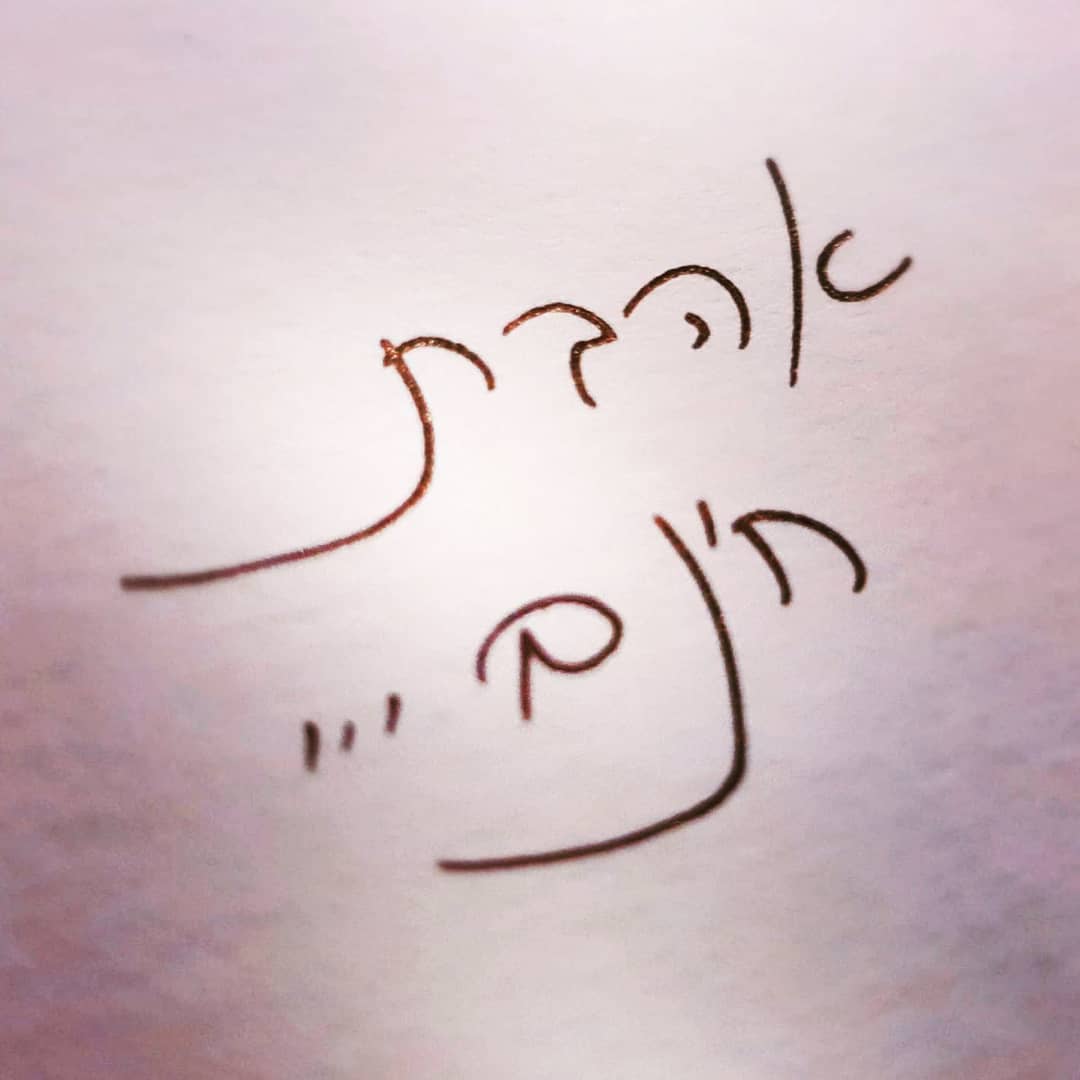 אהבת
חינם...